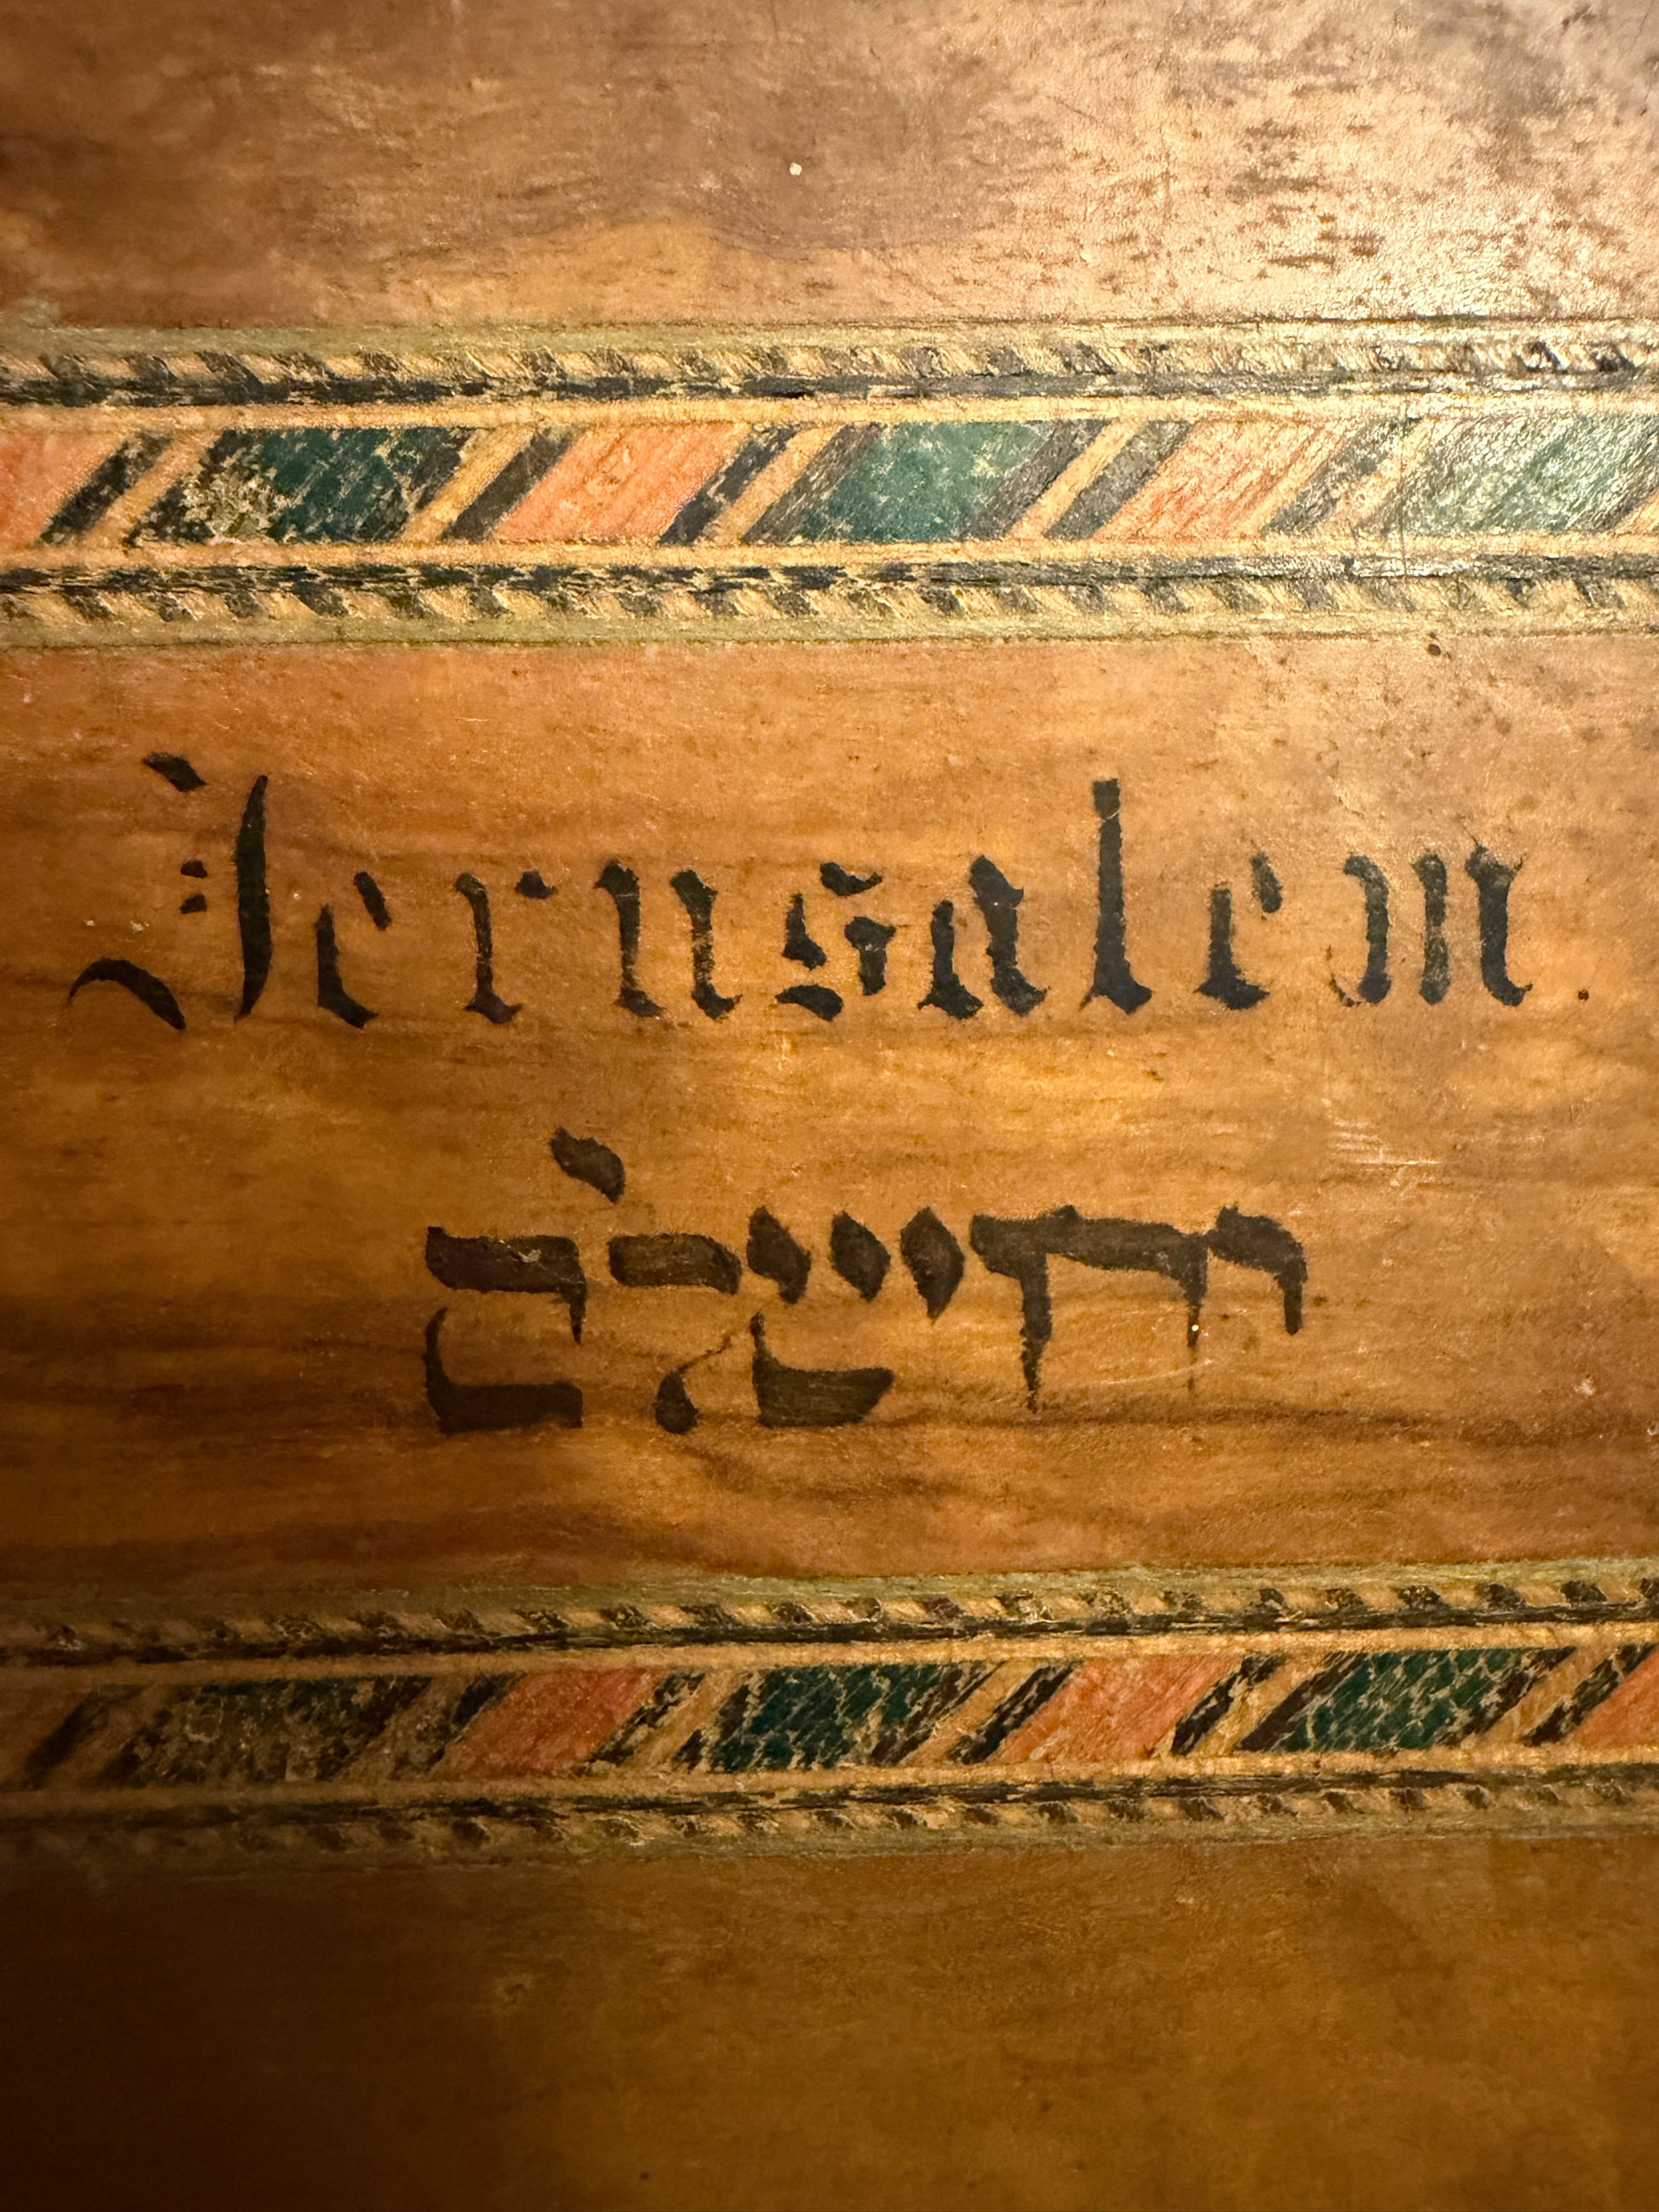 Jerusalem
ירושלם